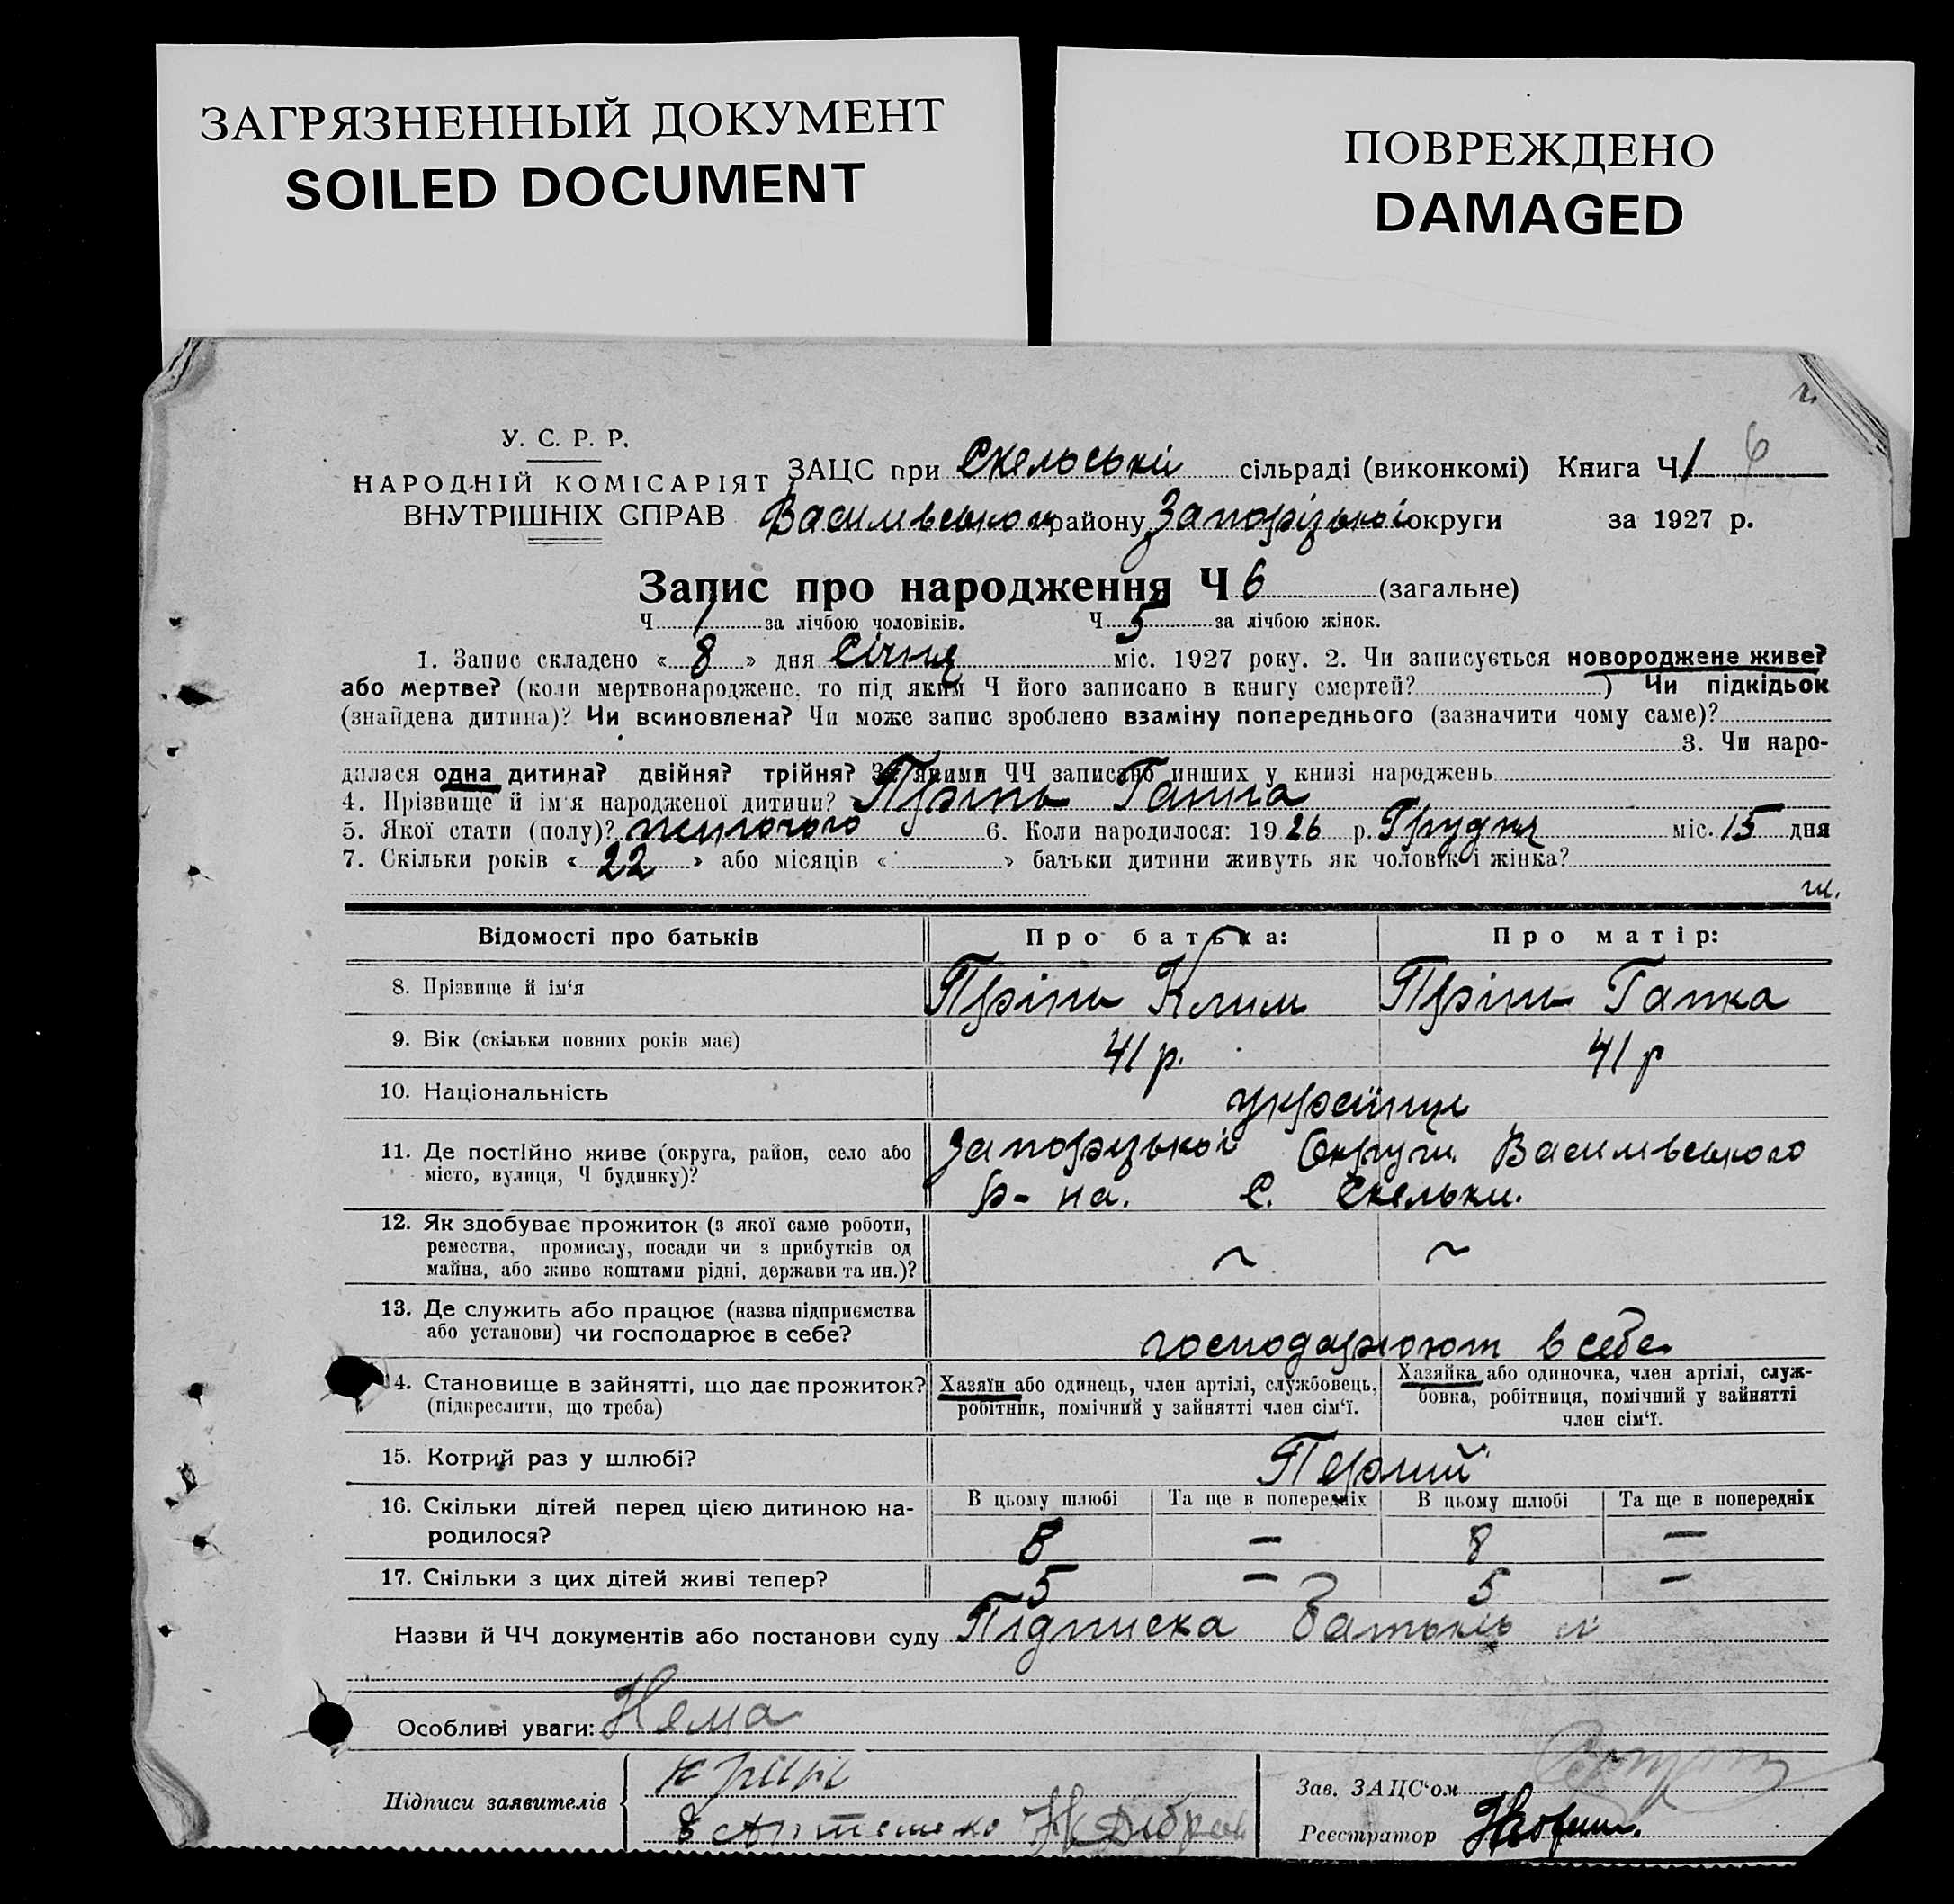 ЗАГРЯЗНЕННЫЙ ДОКУМЕНТ
SOILED DOCUMENT
ПОВРЕЖДЕНО
DAMAGED
У. С. Р. Р.
НАРОДНІЙ КОМІСАРІЯТ
ВНУТРІШНІХ СПРАВ
ЗАЦС при Скельській сільраді (виконкомі) Книга Ч 1 6
Василівського району Запорізької округи за 1927 р.
Запис про народження Ч 6 (загальне)
Ч 1 за лічбою чоловіків. Ч 5 за лічбою жінок.
1. Запис складено « 8 » дня Січня міс. 1927 року. 2. Чи записується новороджене живе?
або мертве? (коли мертвонароджене, то під яким Ч його записано в книгу смертей? ) Чи підкідьок
(знайдена дитина)? Чи всиновлена? Чи може запис зроблено взаміну попереднього (зазначити чому саме)?
3. Чи наро-
дилася одна дитина? двійня? трійня? За якими ЧЧ записано инших у книзі народжень
4. Прізвище й ім'я народженої дитини? Пріпь Ганна
5. Якої стати (полу)? жіночого 6. Коли народилося: 19 26 р. Грудня міс. 15 дня
7. Скільки років « 22 » або місяців « » батьки дитини живуть як чоловік і жінка?
Відомості про батьків Про батька: Про матір:
8. Прізвище й ім'я Клим Гапка
9. Вік (скільки повних років має) 41 р. 41 р
10. Національність українці
11. Де постійно живе (округа, район, село або Запорізької Округи Василівського
місто, вулиця, Ч будинку)? р-на. С. Скельки.
12. Як здобуває прожиток (з якої саме роботи,
ремества, промислу, посади чи з прибутків од ~ ~
майна, або живе коштами рідні, держави та ин.)?
13. Де служить або працює (назва підприємства
або установи) чи господарює в себе? господарюют в себе
14. Становище в зайнятті, що дає прожиток?
(підкреслити, що треба)
Хазяїн або одинець, член артілі, службовець,
робітник, помічний у зайнятті член сім'ї.
Хазяйка або одиночка, член артілі, служ-
бовка, робітниця, помічний у зайнятті
член сім'ї.
15. Котрий раз у шлюбі? Перший
16. Скільки дітей перед цією дитиною на-
родилося?
В цьому шлюбі Та ще в попередніх В цьому шлюбі Та ще в попередніх
8 — 8 —
17. Скільки з цих дітей живі тепер? 5 — 5 —
Назви й ЧЧ документів або постанови суду Підписка батьків
Особливі уваги: Нема
Підписи заявителів
Зав. ЗАЦС'ом
Реєстратор